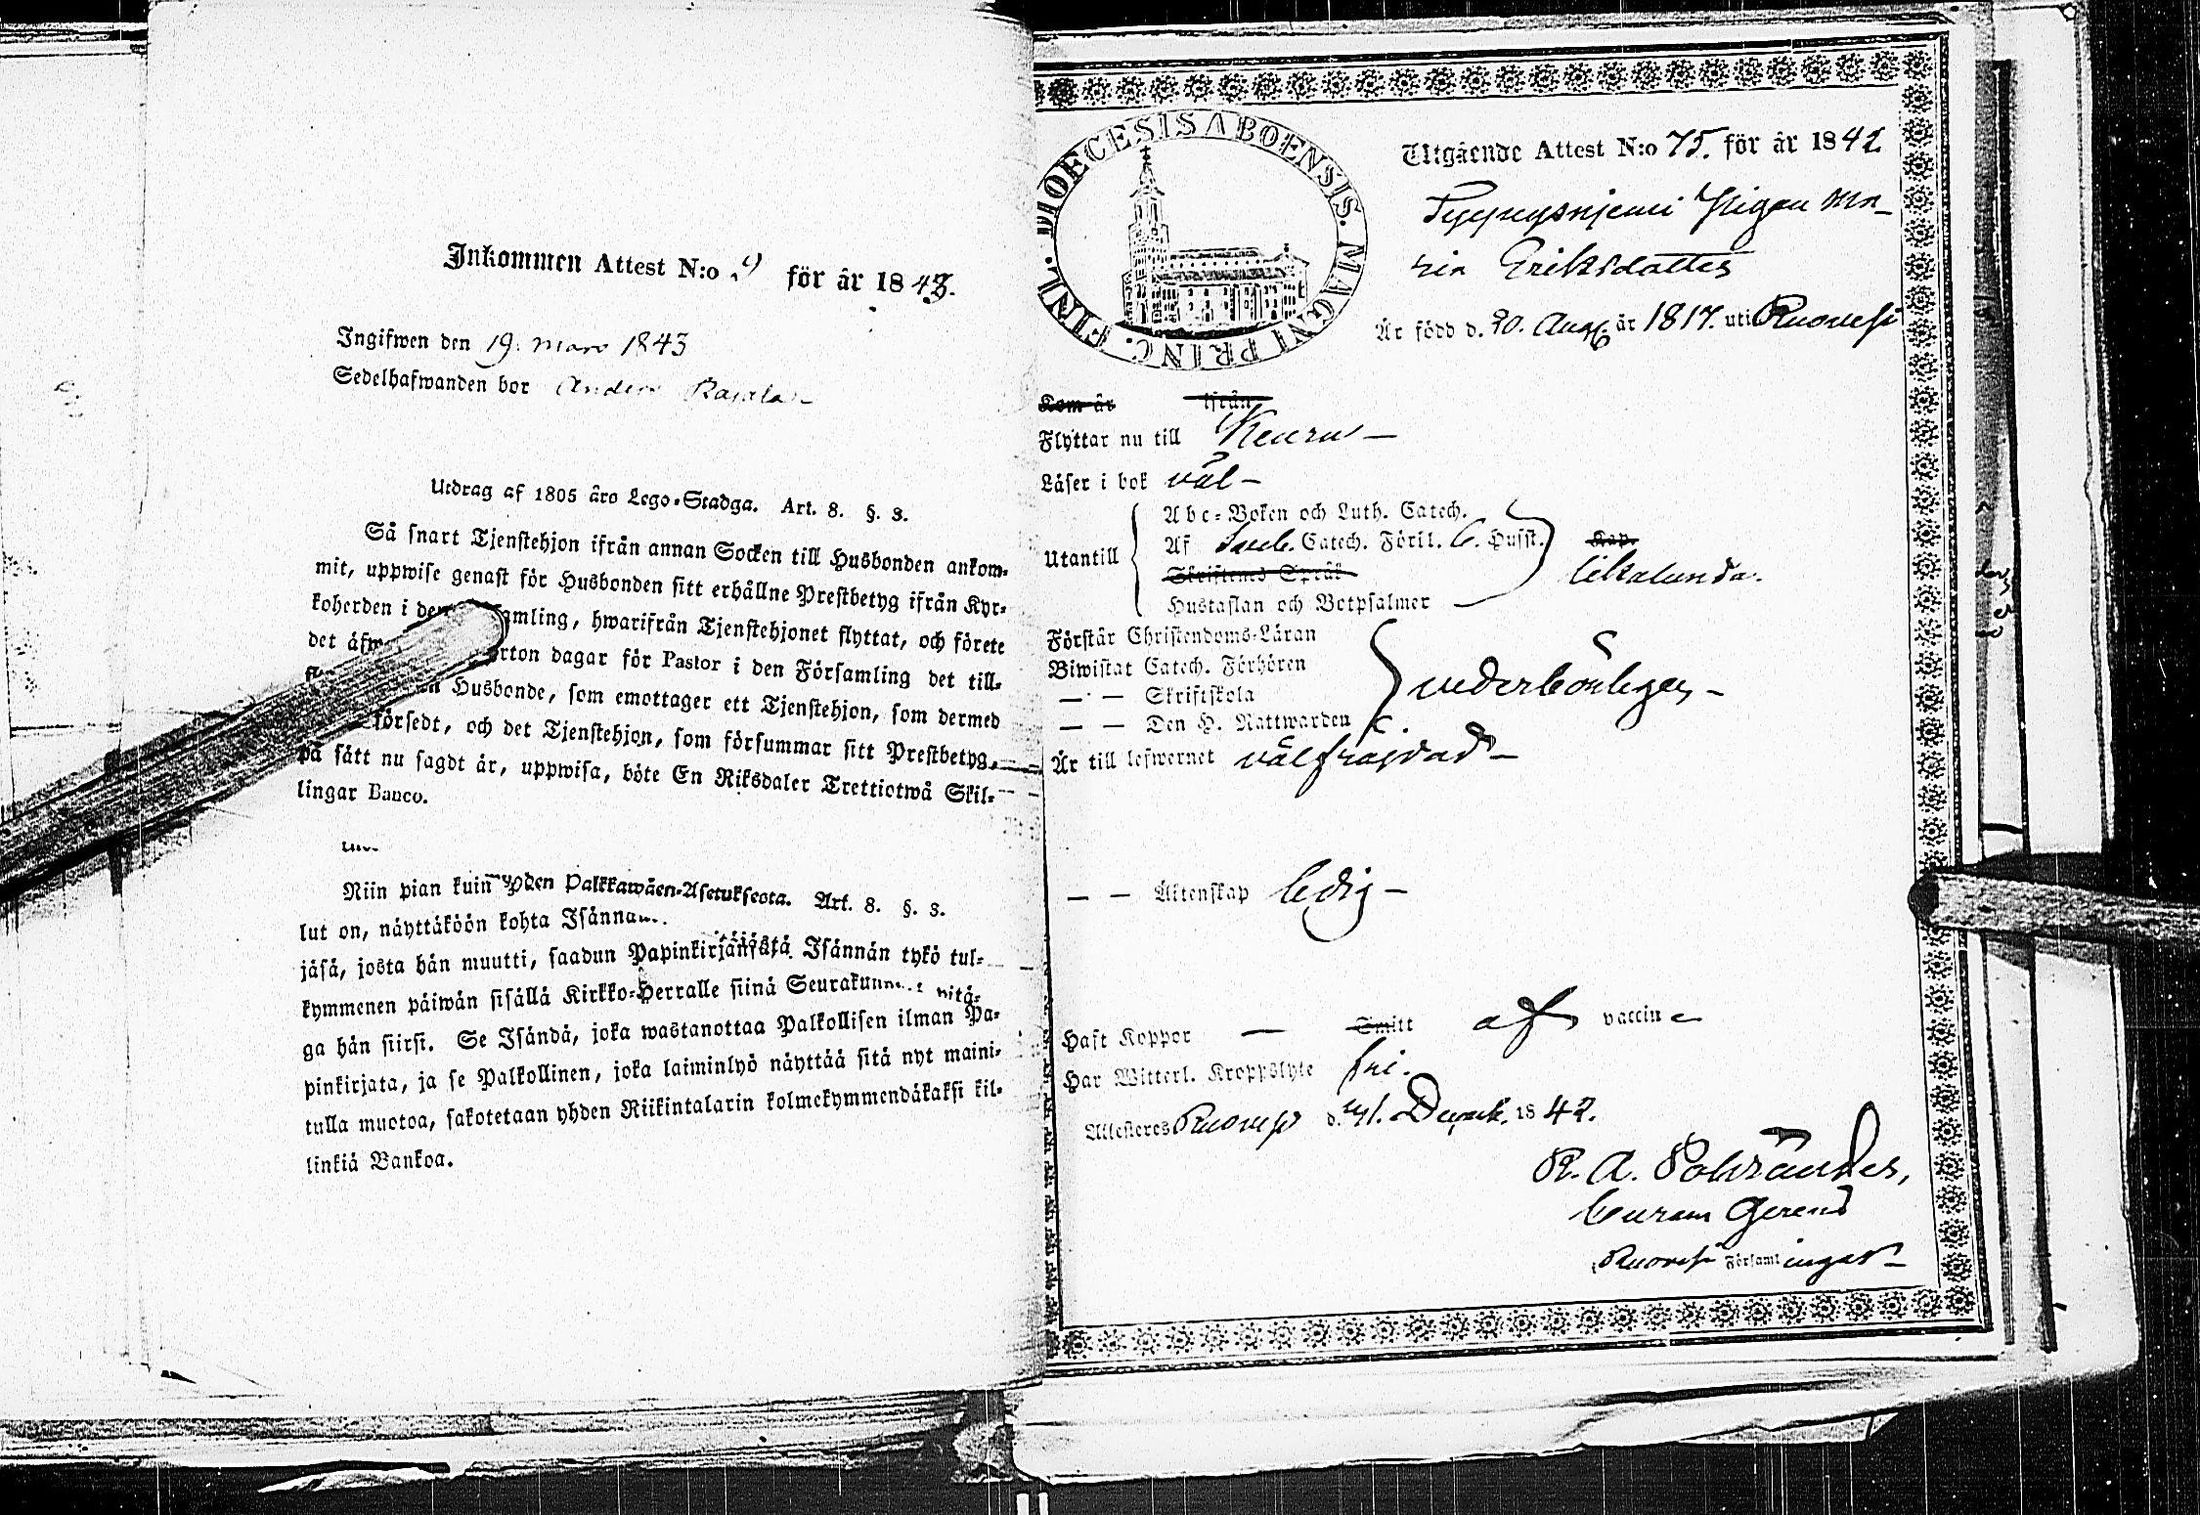 Inkommen Attest N:o 9 för år 1843.
Ingifwen den 19. mars 1843
Sedelhafwanden bor Anders
Utdrag af 1805 års Lego-Stadga. Art. 8. §. 3.
Så snart Tjenstehjon ifrån annan Socken till Husbonden ankom-
mit, uppwise genast för Husbonden sitt erhållne Prestbetyg ifrån Kyr-
koherden i den mling, hwarifrån Tjenstehjonet flyttat, och förete
det rton dagar för Pastor i den Församling det till-
Husbonde, som emottager ett Tjenstehjon, som dermed
försedt, och det Tjenstehjon, som försummar sitt Prestbetyg,
på sätt nu sagdt är, uppwisa, böte En Riksdaler Trettiotwå Skil-
lingar Banco.
yden Palkkawäen-Asetuksesta. Art. 8. §. 3.
Niin pian kuin
lut on, näyttäköön kohta Isännä
Isännän tykö tul-
jäsä, josta hän muutti, saadun Papinkirjansa
kymmenen päiwän sisällä Kirkko-Herralle siinä Seurakun pitä-
ga hän siirsi. Se Isändä, joka wastanottaa Palkollisen ilman Pa-
pinkirjata, ja se Palkollinen, joka laiminlyö näyttää sitä nyt maini-
tulla muotoa, sakotetaan yhden Riikintalarin kolmekymmendäkaksi kil-
linkiä Bankoa.
FINL. DIOECESIS ABOENSIS. MAGNI PRINC.
Utgående Attest N:o 75. för år 1842
Pigan Ma-
ria Eriksdotter
Är född d. 20. Aug. år 1817. uti Ruovesi
Kom år ifrån
Flyttar nu till Keuru –
Läser i bok väl –
Utantill
Abc-Boken och Luth. Catech.
Af Sveb. Catech. Förkl. C. Husst. Kap.
Skriftens Språk
likalunda.
Hustaflan och Botpsalmer
Förstår Christendoms-Läran
Biwistat Catech. Förhören
— — Skriftskola
vederbörligen –
— — Den H. Nattwarden
Är till lefwernet välfräjdad –
— — Äktenskap ledig –
Haft Koppor — Smitt af vaccine
Har Witterl. Kroppslyte fri.
Attesteres Ruovesi d. 31. Decemb. 1842.
R. A. Pohränder,
Curam Gerens
Ruovesi Församlingar –